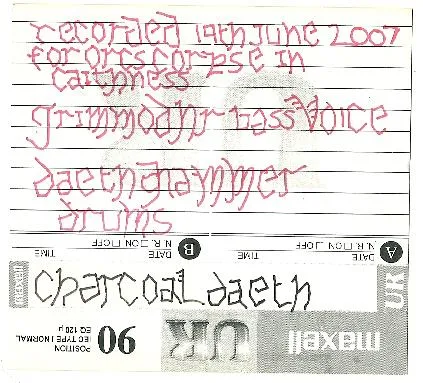 recorded 19th June 2007
for orcs corpse in
caithness
grimmodhr bass voice
drums
A DATE TIME
N.R. □ON □OFF
B DATE TIME
N.R. □ON □OFF
charcoal daeth
UR
maxell
UR
90
POSITION
IEC TYPE I NORMAL
EQ 120µ